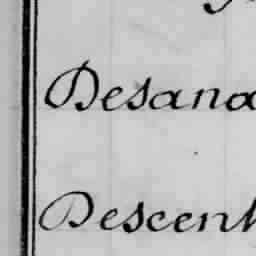 Desana
Descent